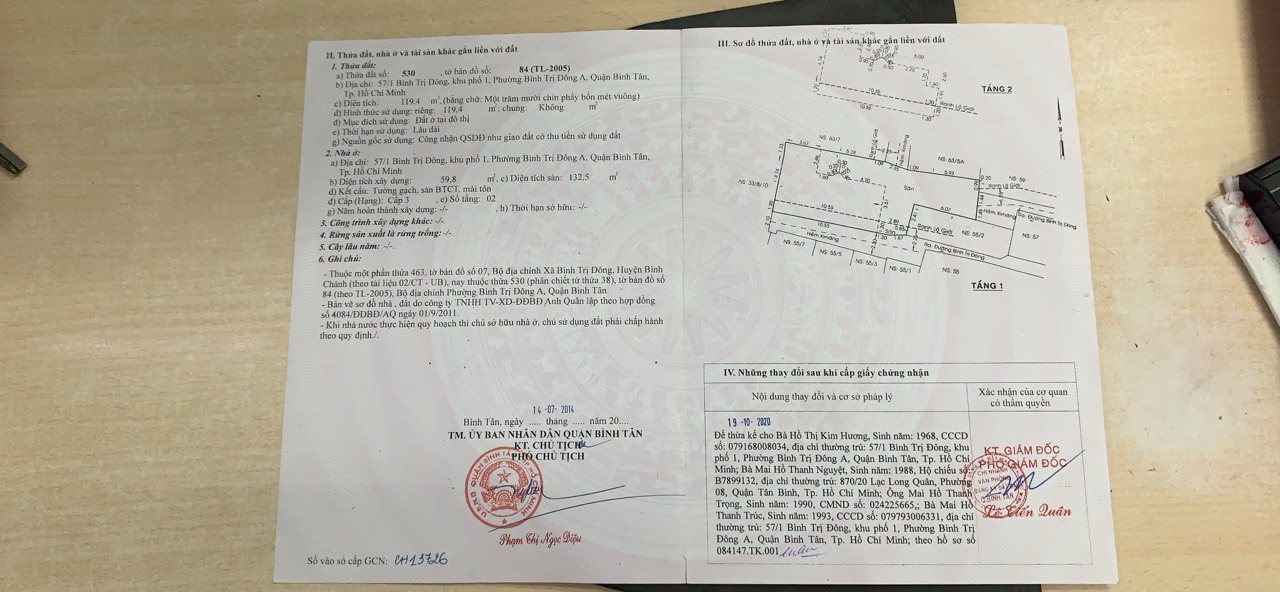 II. Thửa đất, nhà ở và tài sản khác gắn liền với đất
1. Thửa đất:
a) Thửa đất số: 530 , tờ bản đồ số: 84 (TL-2005)
b) Địa chỉ: 57/1 Bình Trị Đông, khu phố 1, Phường Bình Trị Đông A, Quận Bình Tân,
Tp. Hồ Chí Minh
c) Diện tích: 119,4 m², (bằng chữ: Một trăm mười chín phẩy bốn mét vuông)
d) Hình thức sử dụng: riêng: 119,4 m²; chung: Không m²
đ) Mục đích sử dụng: Đất ở tại đô thị
e) Thời hạn sử dụng: Lâu dài
g) Nguồn gốc sử dụng: Công nhận QSDĐ như giao đất có thu tiền sử dụng đất
2. Nhà ở:
a) Địa chỉ: 57/1 Bình Trị Đông, khu phố 1, Phường Bình Trị Đông A, Quận Bình Tân,
Tp. Hồ Chí Minh
b) Diện tích xây dựng: 59,8 m², c) Diện tích sàn: 132,5 m²
d) Kết cấu: Tường gạch, sàn BTCT, mái tôn
đ) Cấp (Hạng): Cấp 3 , e) Số tầng: 02
g) Năm hoàn thành xây dựng: -/- , h) Thời hạn sở hữu: -/-
3. Công trình xây dựng khác: -/-
4. Rừng sản xuất là rừng trồng: -/-
5. Cây lâu năm: -/-
6. Ghi chú:
- Thuộc một phần thửa 463, tờ bản đồ số 07, Bộ địa chính Xã Bình Trị Đông, Huyện Bình
Chánh (theo tài liệu 02/CT - UB), nay thuộc thửa 530 (phân chiết từ thửa 38), tờ bản đồ số
84 (theo TL-2005), Bộ địa chính Phường Bình Trị Đông A, Quận Bình Tân.
- Bản vẽ sơ đồ nhà , đất do công ty TNHH TV-XD-ĐĐBĐ Anh Quân lập theo hợp đồng
số 4084/ĐĐBĐ/AQ ngày 01/9/2011.
- Khi nhà nước thực hiện quy hoạch thì chủ sở hữu nhà ở, chủ sử dụng đất phải chấp hành
theo quy định./.
14 -07- 2014
Bình Tân, ngày ..... tháng ..... năm 20....
TM. ỦY BAN NHÂN DÂN QUẬN BÌNH TÂN
KT. CHỦ TỊCH
PHÓ CHỦ TỊCH
Phạm Thị Ngọc Diệu
Số vào sổ cấp GCN: CH13726
III. Sơ đồ thửa đất, nhà ở và tài sản khác gắn liền với đất
5.00
10.55
10.55
1.30
Ranh Lộ Giới
TẦNG 2
NS 63/7
3.67
5.28
Ranh Lộ Giới
Hẻm Ximăng
NS 63/5A
1.09
5.93
0.70
NS 59
Ranh Lộ Giới
NS 33/8/10
4.20
Sân
6.07
Hẻm Ximăng
Ra. Đường Bình Trị Đông
10.55
10.55
2.41
Ranh Lộ Giới
NS 55/2
NS 57
Hẻm Ximăng
Sân
1.57
Ra. Đường Bình Trị Đông
NS 55/7
NS 55/5
NS 55/3
NS 55/1
NS 55
TẦNG 1
IV. Những thay đổi sau khi cấp giấy chứng nhận
Nội dung thay đổi và cơ sở pháp lý
Xác nhận của cơ quan
có thẩm quyền
19 -10- 2020
Để thừa kế cho Bà Hồ Thị Kim Hương, Sinh năm: 1968, CCCD
số: 079168008034, địa chỉ thường trú: 57/1 Bình Trị Đông, khu
phố 1, Phường Bình Trị Đông A, Quận Bình Tân, Tp. Hồ Chí
Minh; Bà Mai Hồ Thanh Nguyệt, Sinh năm: 1988, Hộ chiếu số:
B7899132, địa chỉ thường trú: 870/20 Lạc Long Quân, Phường
08, Quận Tân Bình, Tp. Hồ Chí Minh; Ông Mai Hồ Thanh
Trọng, Sinh năm: 1990, CMND số: 024225665,; Bà Mai Hồ
Thanh Trúc, Sinh năm: 1993, CCCD số: 079793006331, địa chỉ
thường trú: 57/1 Bình Trị Đông, khu phố 1, Phường Bình Trị
Đông A, Quận Bình Tân, Tp. Hồ Chí Minh; theo hồ sơ số
084147.TK.001
KT. GIÁM ĐỐC
PHÓ GIÁM ĐỐC
Lê Tiến Quân